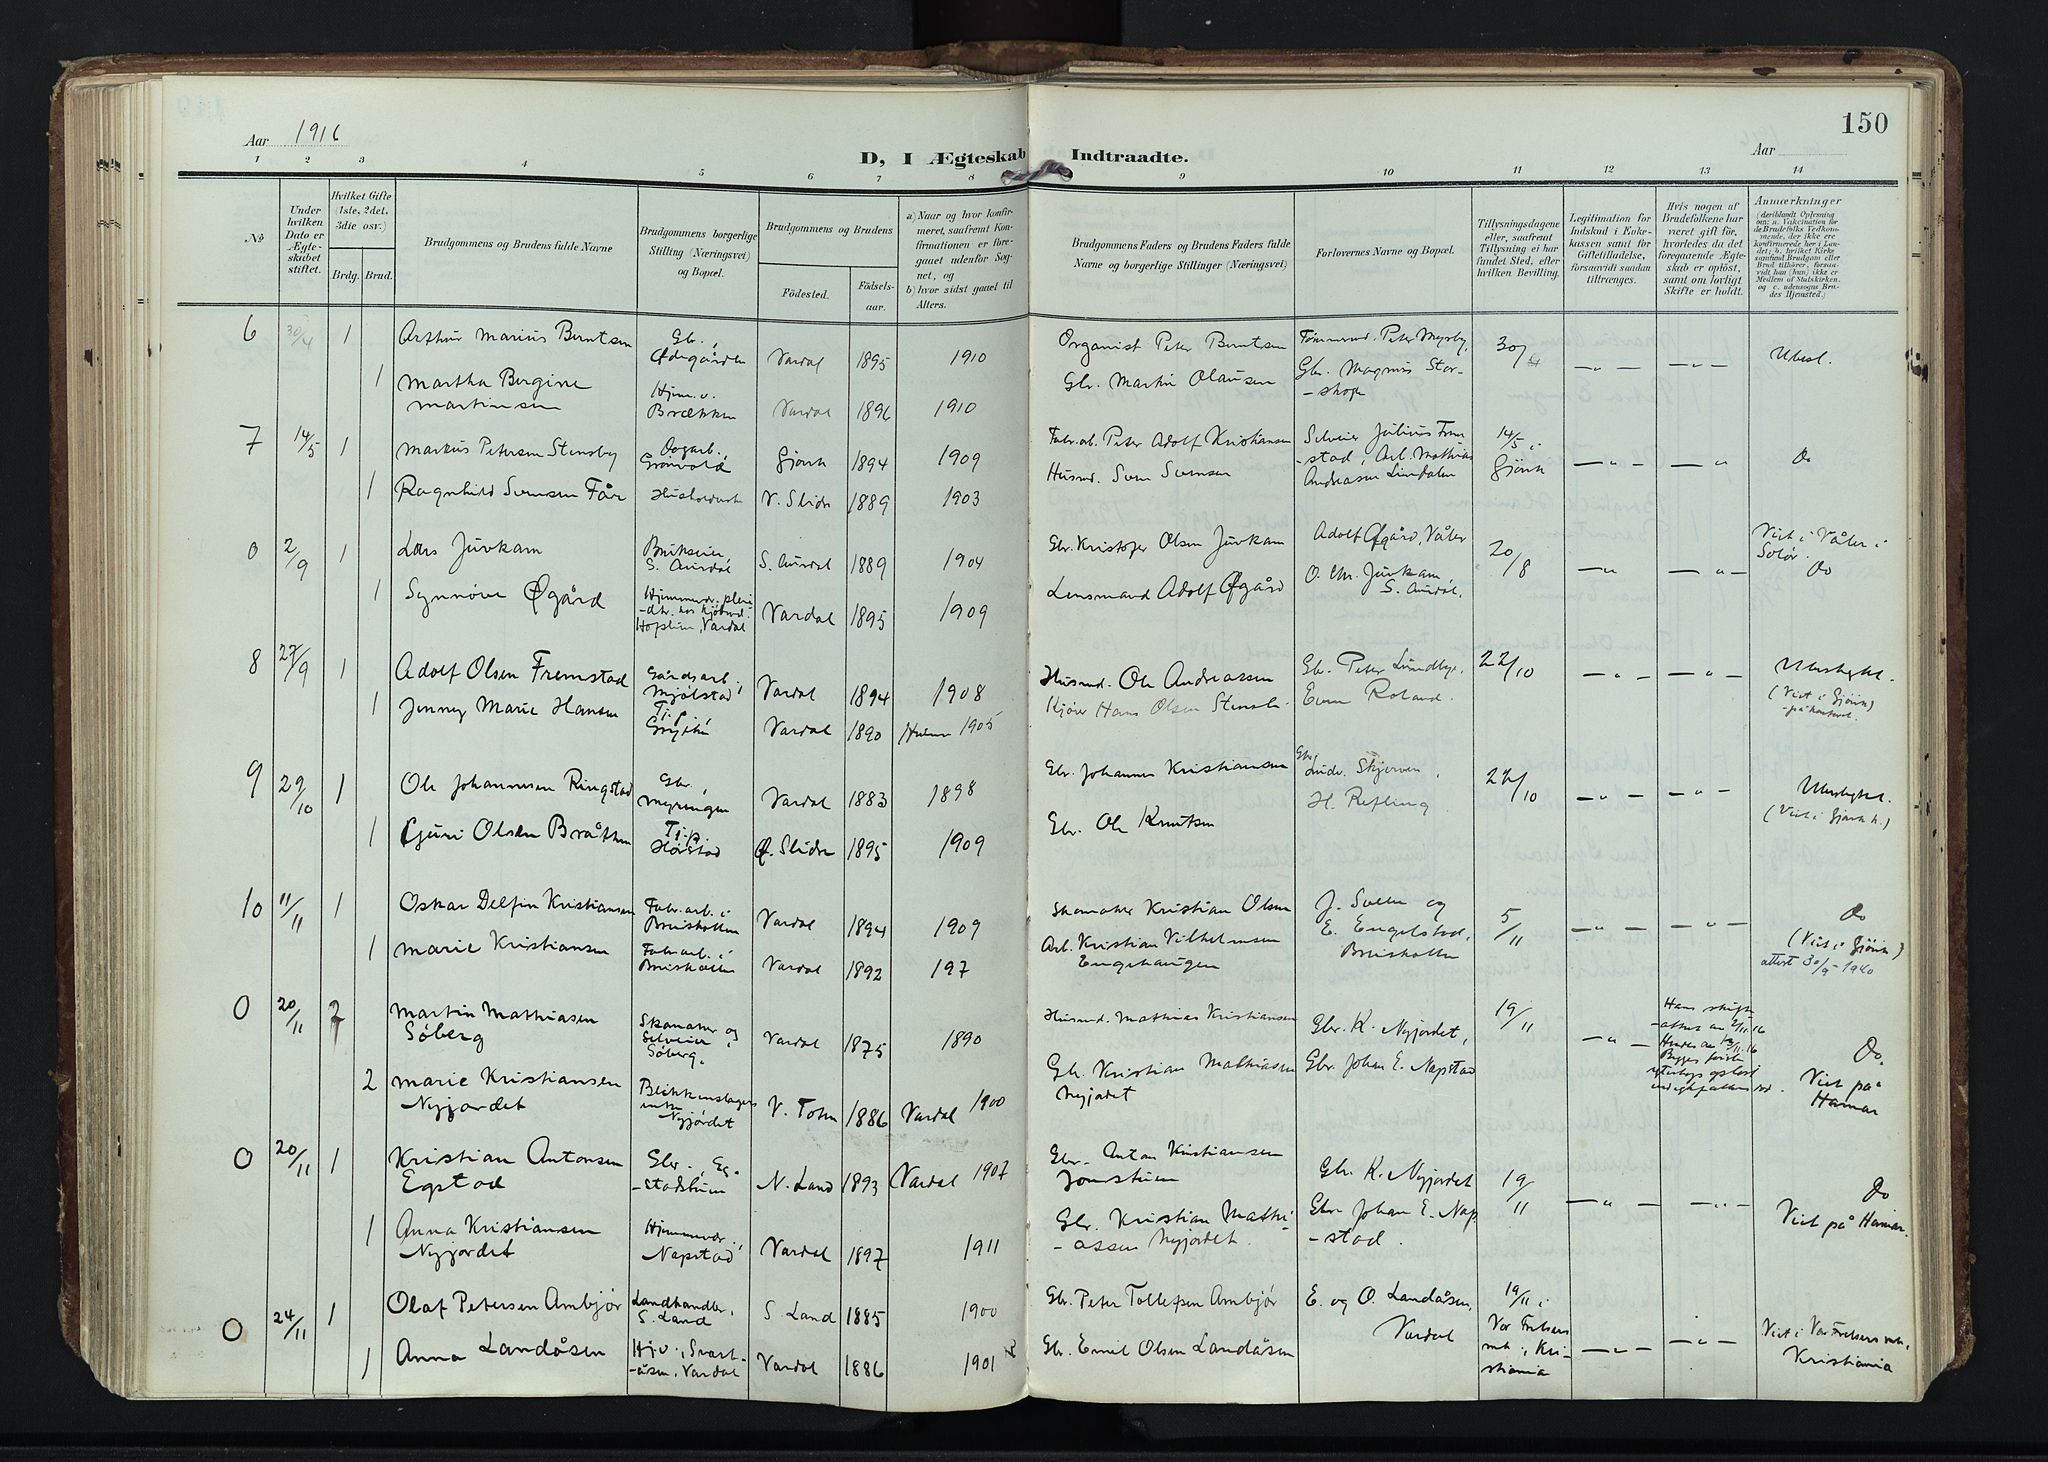 Aar 1916
D, I Ægteskab Indtraadte.
150
Aar
1 2 3 4 5 6 7 8 9 10 11 12 13 14
No
Under hvilken Dato er Ægteskabet stiftet.
Hvilket Gifte (1ste, 2det, 3die osv.)
Brdg. Brud.
Brudgommens og Brudens fulde Navne
Brudgommens borgerlige Stilling (Næringsvei) og Bopæl.
Brudgommens og Brudens
Fødested.
Fødselsaar.
a) Naar og hvor konfirmeret, saafremt Konfirmationen er foregaaet udenfor Sognet, og
b) hvor sidst gaaet til Alters.
Brudgommens Faders og Brudens Faders fulde Navne og borgerlige Stillinger (Næringsvei)
Forlovernes Navne og Bopæl.
Tillysningsdagene eller, saafremt Tillysning ei har fundet Sted, efter hvilken Bevilling.
Legitimation for Indskud i Enkekassen samt for Giftetilladelse, forsaavidt saadan tiltrænges.
Hvis nogen af Brudefolkene har været gift før, hvorledes da det foregaaende Ægteskab er opløst, samt om lovligt Skifte er holdt.
Anmærkninger
6 30/4 1 Arthur Marius Berntsen Gbr., Ødegården Vardal 1895 1910 Organist Peter Berntsen Tømmermd. Peter Myrby, 30/4 — " — — " — Ubesl.
1 Martha Bergine Martinsen Hjem. v. Brækken Vardal 1896 1910 Gbr. Martin Olausen Gbr. Magnus Storskogen
7 14/5 1 Markus Petersen Stensby Grønvold Gjøvik 1894 1909 Fabr.arb. Peter Adolf Kristiansen Selveier Julius Fremstad, Arb. Mathias Andreasen Lundalen 14/5 i Gjøvik — " — — " Do
1 Ragnhild Svensen Får V. Slidre 1889 1903 Husmd. Sven Svensen
0 2/9 1 Lars Juvkam Brukseier, S. Aurdal S. Aurdal 1889 1904 Gbr. Kristofer Olsen Juvkam Adolf Øfgård, Våler 20/8 — " — " — Viet i Våler i Solør. Do
1 Synnøve Øgård Hoplien, Vardal Vardal 1895 1909 Lensmand Adolf Øfgård O. Chr. Juvkam S. Aurdal.
8 27/9 1 Adolf Olsen Fremstad Gårdsarb., Mjølstad Vardal 1894 1908 Husmd. Ole Andreassen Gbr. Peter Lundbye, 22/10 — " — — " — Ubeslegtet.
1 Jenny Marie Hansen Tj.p. Vardal 1890 1905 Hans Olsen Even Roland. (Viet i Gjøvik)
9 29/10 1 Ole Johannesen Ringstad Gbr., Myrengen Vardal 1883 1898 Gbr. Johannes Kristiansen Gbr. Ludv. Skjerven, 22/10 — " — — " — Ubeslegtet.
1 Guri Olsen Bråthen Tj.p. Hørstad Ø. Slidre 1895 1909 Gbr. Ole Knutsen H. Refling (Viet i Gjøvik k.)
10 11/11 1 Oskar Delfin Kristiansen Fabr.arb. i Vardal 1894 1909 Skomaker Kristian Olsen J. Sveen og 5/11 — " — — " — Do
1 Marie Kristiansen Fabr.arb. i Vardal 1892 197 Arb. Kristian Vilhelmsen Engehaugen E. Engelstad, (Viet i Gjøvik) attest 30/9-1940
0 20/11 2 Martin Mathiasen Søberg Skomaker og Selveier, Søberg. Vardal 1875 1890 Husmd. Mathias Kristiansen Gbr. K. Nyjordet, 19/11 — " — Do.
2 Marie Kristiansen Nyjordet Blikkenslager enke Nyjordet V. Toten 1886 Vardal 1900 Gbr. Kristian Mathiasen Nyjordet Gbr. Johan E. Napstad Viet på Hamar
0 20/11 1 Kristian Antonsen Egstad Gbr., Egstadstuen N. Land 1893 Vardal 1907 Gbr. Anton Kristiansen Gbr. K. Nyjordet 19/11 — " — — " — Do
1 Anna Kristiansen Nyjordet Hjemmevær., Napstad Vardal 1897 1911 Gbr. Kristian Mathiassen Nyjordet. Gbr. Johan E. Napstad. Viet på Hamar.
0 24/11 1 Olaf Petersen Ambjør Landhandler, S. Land S. Land 1885 1900 Gbr. Peter Tollefsen Ambjør E. og O. Landåsen, Vardal 19/11 i Vor Frelsers Kristiania — " — — " — Viet i Vor Frelsers Kristiania
1 Anna Landåsen Hj.v., Svartåsen, Vardal Vardal 1886 1901 Gbr. Emil Olsen Landåsen